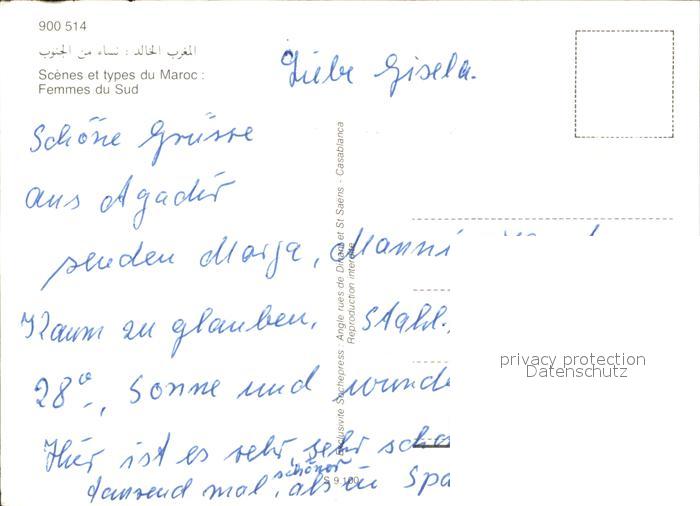 900 514
المغرب الخالد : نساء من الجنوب
Scènes et types du Maroc :
Femmes du Sud
Liebe Gisela.
Schöne Grüsse
aus Agadir
senden Marga, Manni
Kaum zu glauben,
28°, Sonne und wunde
Hier ist es sehr, sehr schö
schöner
tausend mal, als in Spa
Exclusivité Sochepress : Angle rues de Dinant et St Saëns - Casablanca
Reproduction interdite
S 9.100
privacy protection
Datenschutz